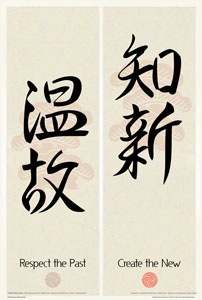 温故
知新
Respect the Past
Create the New